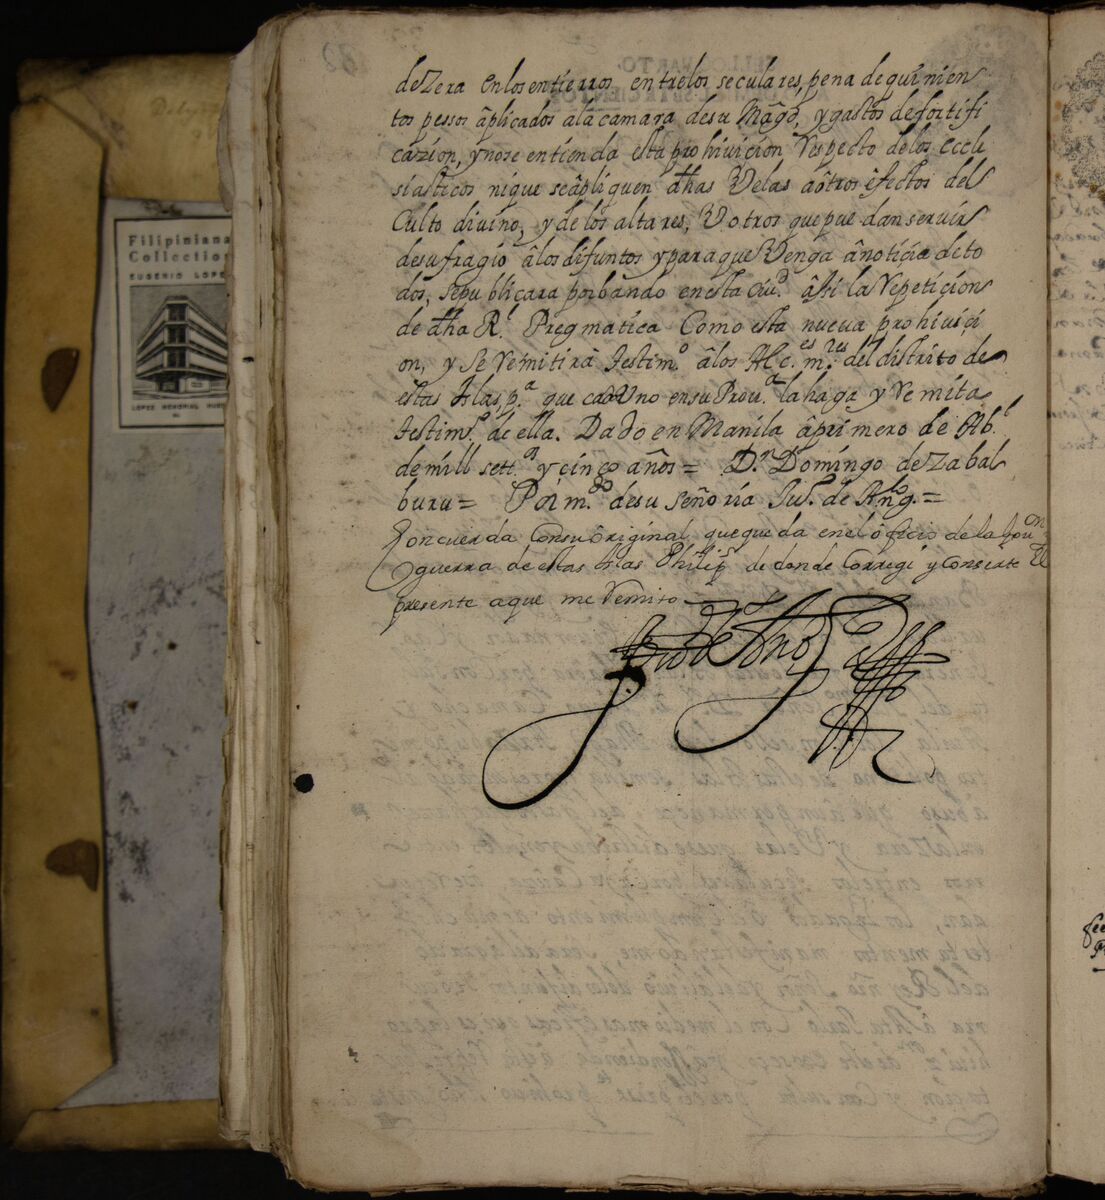 Filipiniana
Collection
EUGENIO LOPE
LOPEZ MEMORIAL MUSE
deZera enlosentierros entrelos seculares, pena dequinien
tos pessos âplicados alacamara desu Mag.d, ygastos defortifi
cazion, ynose entienda esta prohivicion Respecto delos eccle
siasticos nique seâpliquen dhas Velas aôtros efectos del
Culto divino, y delos altares, V otros que puedan servir
desufragio âlos difuntos yparaque Venga ânoticia deto
dos, sepublicara porbando enesta Ciu.d âsi la Repeticion
de dha R.l Pregmatica Como esta nueva prohivici
on, y se Remitirà testim.o âlos Alc.es m.res del distrito de
estas Yslas, p.a que cadaVno ensu Prou.a lahaga y Remita
testim.o de ella. Dado en Manila âprimero de Ab.l
demill sett.os y cinco años = D.n Domingo deZabal
buru = Por m.do desu señoria Ju.o de Ang.lo =
Concuerda Consu Original quequeda enel ôficio de la Gou.on
y guerra de estas Yslas Philip.s de donde Corregi y Conserte El
presente aque me Remito